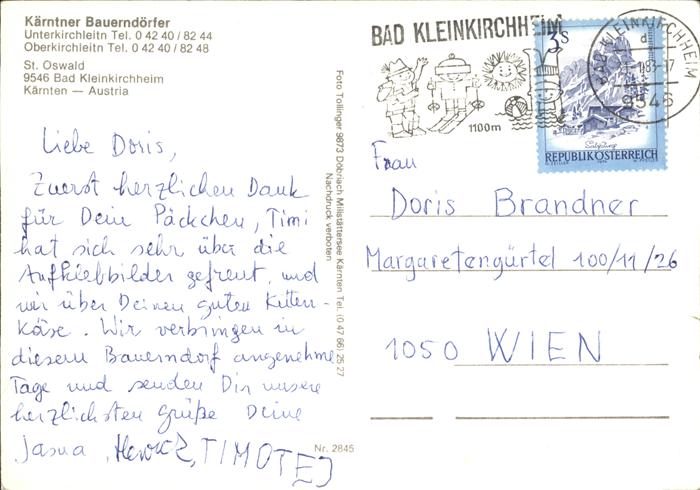 Kärntner Bauerndörfer
Unterkirchleitn Tel. 0 42 40 / 82 44
Oberkirchleitn Tel. 0 42 40 / 82 48
St. Oswald
9546 Bad Kleinkirchheim
Kärnten — Austria
Liebe Doris,
Zuerst herzlichen Dank
für Dein Päckchen, Timi
hat sich sehr über die
Aufkiebbilder gefreut, und
wir über Deinen guten
käse. Wir verbringen in
diesem Bauerndorf angenehme
Tage und senden Dir unsere
herzlichsten Grüße Deine
Jasna, TIMOTEJ
Foto Tollinger 9873 Döbriach Millstättersee Kärnten Tel. (0 47 66) 25 27
Nachdruck verboten
Nr. 2845
BAD KLEINKIRCHHEIM
1100m
BAD KLEINKIRCHHEIM
d
83-17
9546
3 S
REPUBLIK ÖSTERREICH
Frau
Doris Brandner
Margaretengürtel 100/11/26
1050 WIEN